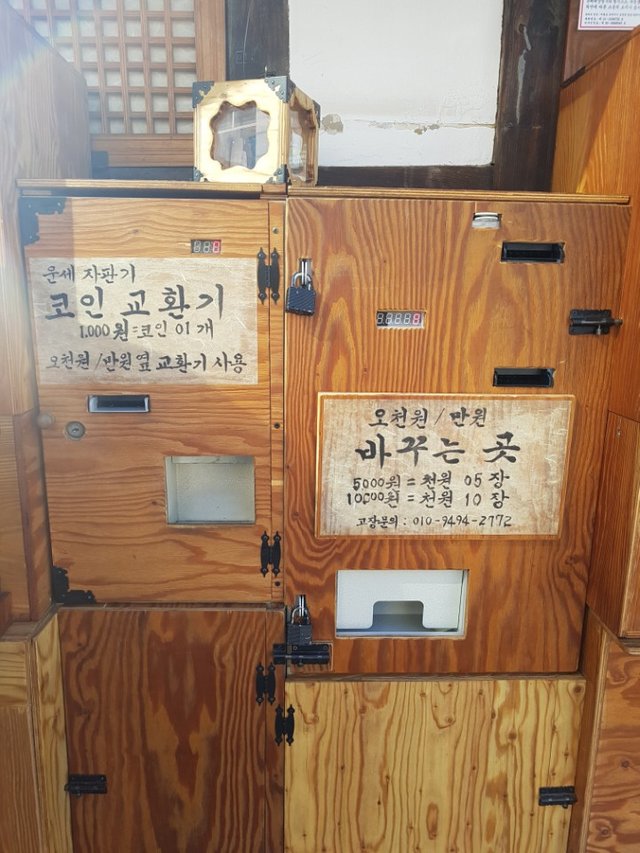 운세 자판기
코인 교환기
1,000원=코인 01개
오천원/만원 옆 교환기 사용
오천원/만원
바꾸는 곳
5000원 = 천원 05 장
10000원 = 천원 10 장
고장문의 : 010-9494-2772